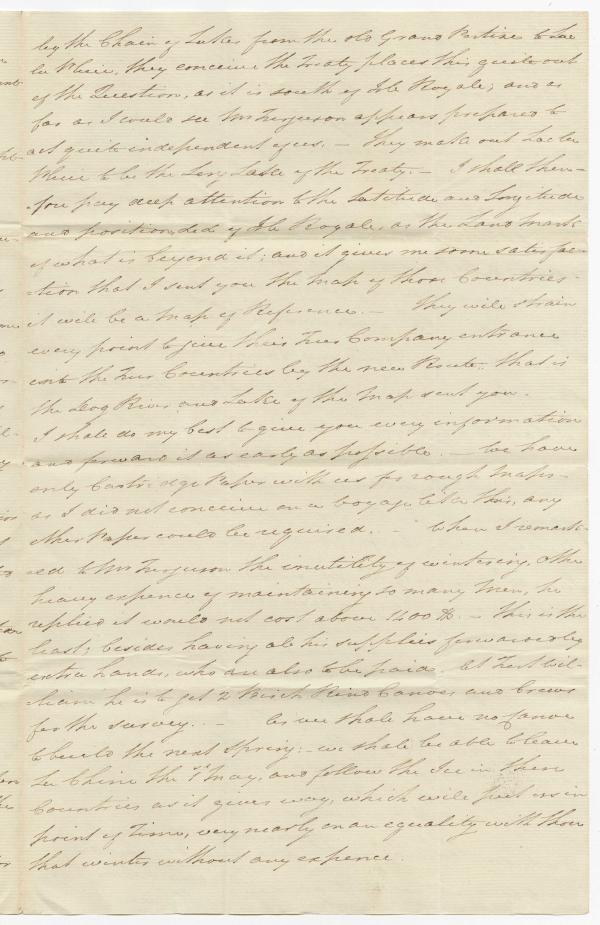 by the Chain of Lakes from the old Grand Portage to Lac
la Pluie, they conceive the Treaty places this quite out
of the Question, as it is south of Isle Royale; and as
far as I could see Mr Ferguson appears prepared to
act quite independent of us. — They make out Lac la
Pluie to be the Long Lake of the Treaty. — I shall there-
fore pay deep attention to the Latitude and Longitude
and position of Isle Royale, as the Land mark
of what is beyond it; and it gives me some satisfac-
tion that I sent you the Map of those Countries –
it will be a Map of Reference. — They will strain
every point to give their Fur Company entrance
into the Fur Countries by the new Route: that is
the Dog River and Lake of the Map sent you.
I shall do my best to give you every information
and forward it as early as possible. — We have
only Cartridge Paper with us for rough Maps –
as I did not conceive on a voyage like this, any
other Paper could be required. — When I remark-
ed to Mr Ferguson the inutility of wintering, & the
heavy expence of maintaining so many Men, he
replied it would not cost above 1400 $. — This is the
least; besides having all his supplies forwarded by
extra hands, who are also to be paid. At Fort Wil-
liam he is to get 2 Birch Rind Canoes and Crews
for the survey. — As we shall have no Canoe
to build the next Spring: – we shall be able to leave
La Chine the 1st May, and follow the Ice in these
Countries as it gives way, which will put us in
point of Time, very nearly on an equality with those
that winter without any expence.